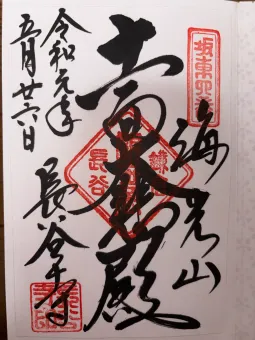 坂東四番
海光山
十一面大悲殿
鎌倉
長谷
長谷寺
令和元年
五月廿六日